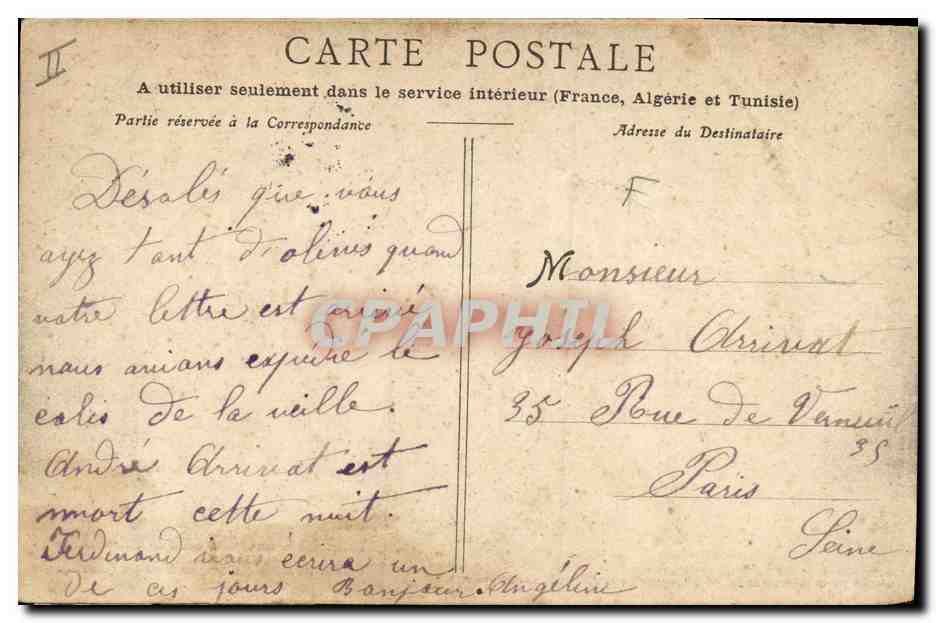 II
CARTE POSTALE
A utiliser seulement dans le service intérieur (France, Algérie et Tunisie)
Partie réservée à la Correspondance
Adresse du Destinataire
Désolés que vous
ayez tant d'olives quand
votre lettre est arrivé
nous avions expédié le
colis de la veille.
André Arrivat est
mort cette nuit.
Ferdinand vous écrira un
de ces jours Bonjour. Angéline
F
Monsieur
Joseph Arrivat
35 Rue de Verneuil
35
Paris
Seine
CPAPHIL